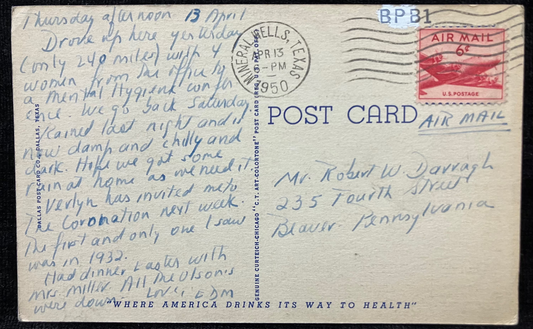 Thursday afternoon 13 April
Drove up here yesterday
(only 240 miles) with 4
women from the office to
a Mental Hygiene confer
ence. We go back Saturday.
Rained last night and it
now damp and chilly and
dark. Hope we got some
rain at home as we need it.
Verlyn has invited me to
the Coronation next week.
The first and only one I saw
was in 1932.
Had dinner Easter with
Mrs. Miller. All the Olson's
were down. Love EDM
DALLAS POST CARD CO., DALLAS, TEXAS
GENUINE CURTEICH-CHICAGO "C.T. ART-COLORTONE" POST CARD (REG. U.S. PAT. OFF.)
MINERAL WELLS, TEXAS
APR 13
6-PM
1950
BPB1
AIR MAIL
6¢
U.S. POSTAGE
POST CARD
AIR MAIL
Mr. Robert W. Darragh
235 Fourth Street
Beaver Pennsylvania
"WHERE AMERICA DRINKS ITS WAY TO HEALTH"